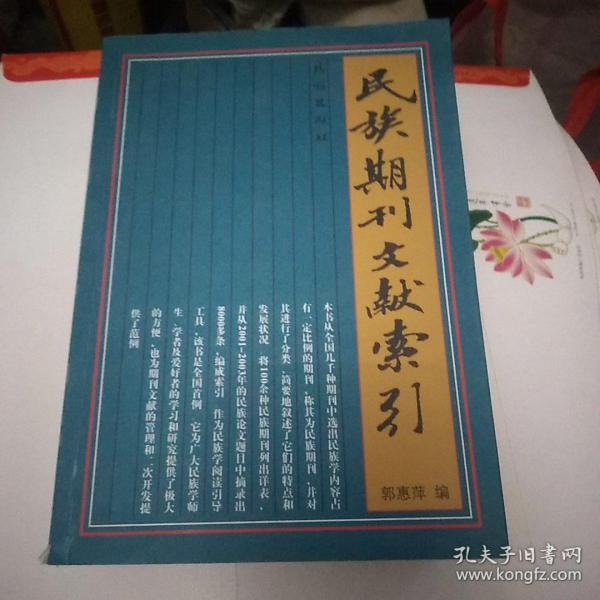 民族期刊文献索引
郭惠萍 编
本书从全国几千种期刊中选出民族学内容占
有一定比例的期刊，称其为民族期刊，并对
其进行了分类，简要地叙述了它们的特点和
发展状况。将100余种民族期刊列出详表，
并从2001-2003年的民族论文题目中摘录出
8000余条，编成索引，作为民族学阅读引导
工具，该书是全国首例，它为广大民族学师
生、学者及爱好者的学习和研究提供了极大
的方便，也为期刊文献的管理和二次开发提
供了范例
孔夫子旧书网
www.kongfz.com